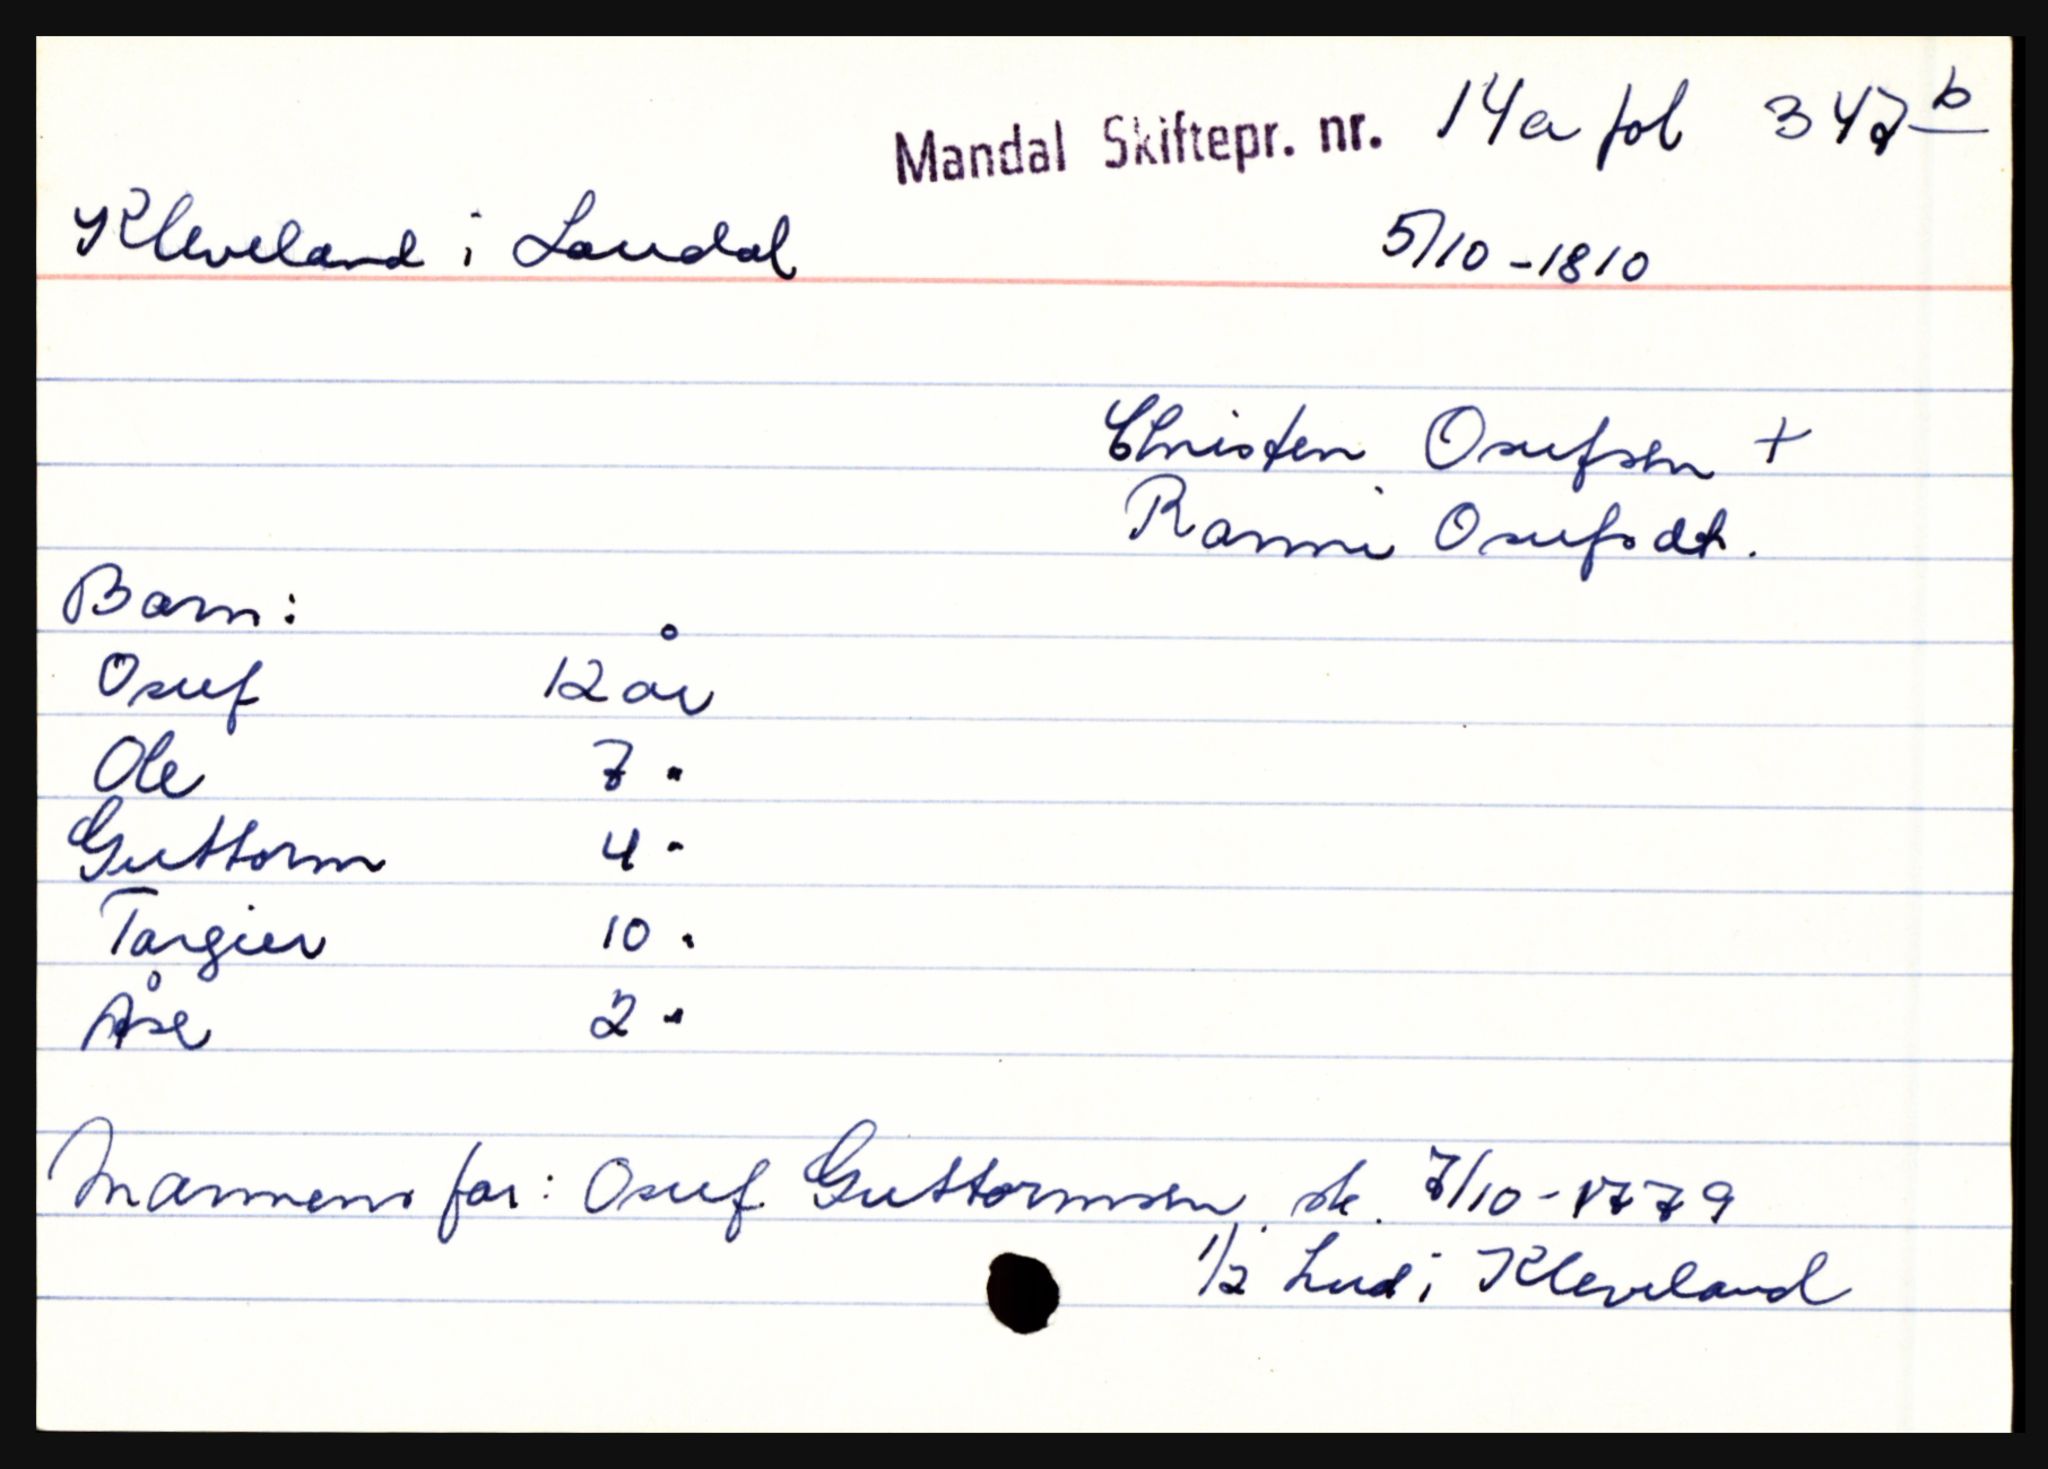 Mandal Skiftepr. nr. 14a fol 347 b
Kleveland i Laudal 5/10-1810
Christen Osufsen +
Ranni Osufsdt.
Barn:
Osuf 12 år
Ole 7 "
Guttorm 4 "
Targier 10 "
Åse 2 "
Mannens far: Osuf Guttormsen sk. 7/10-1779
1/2 hud i Kleveland